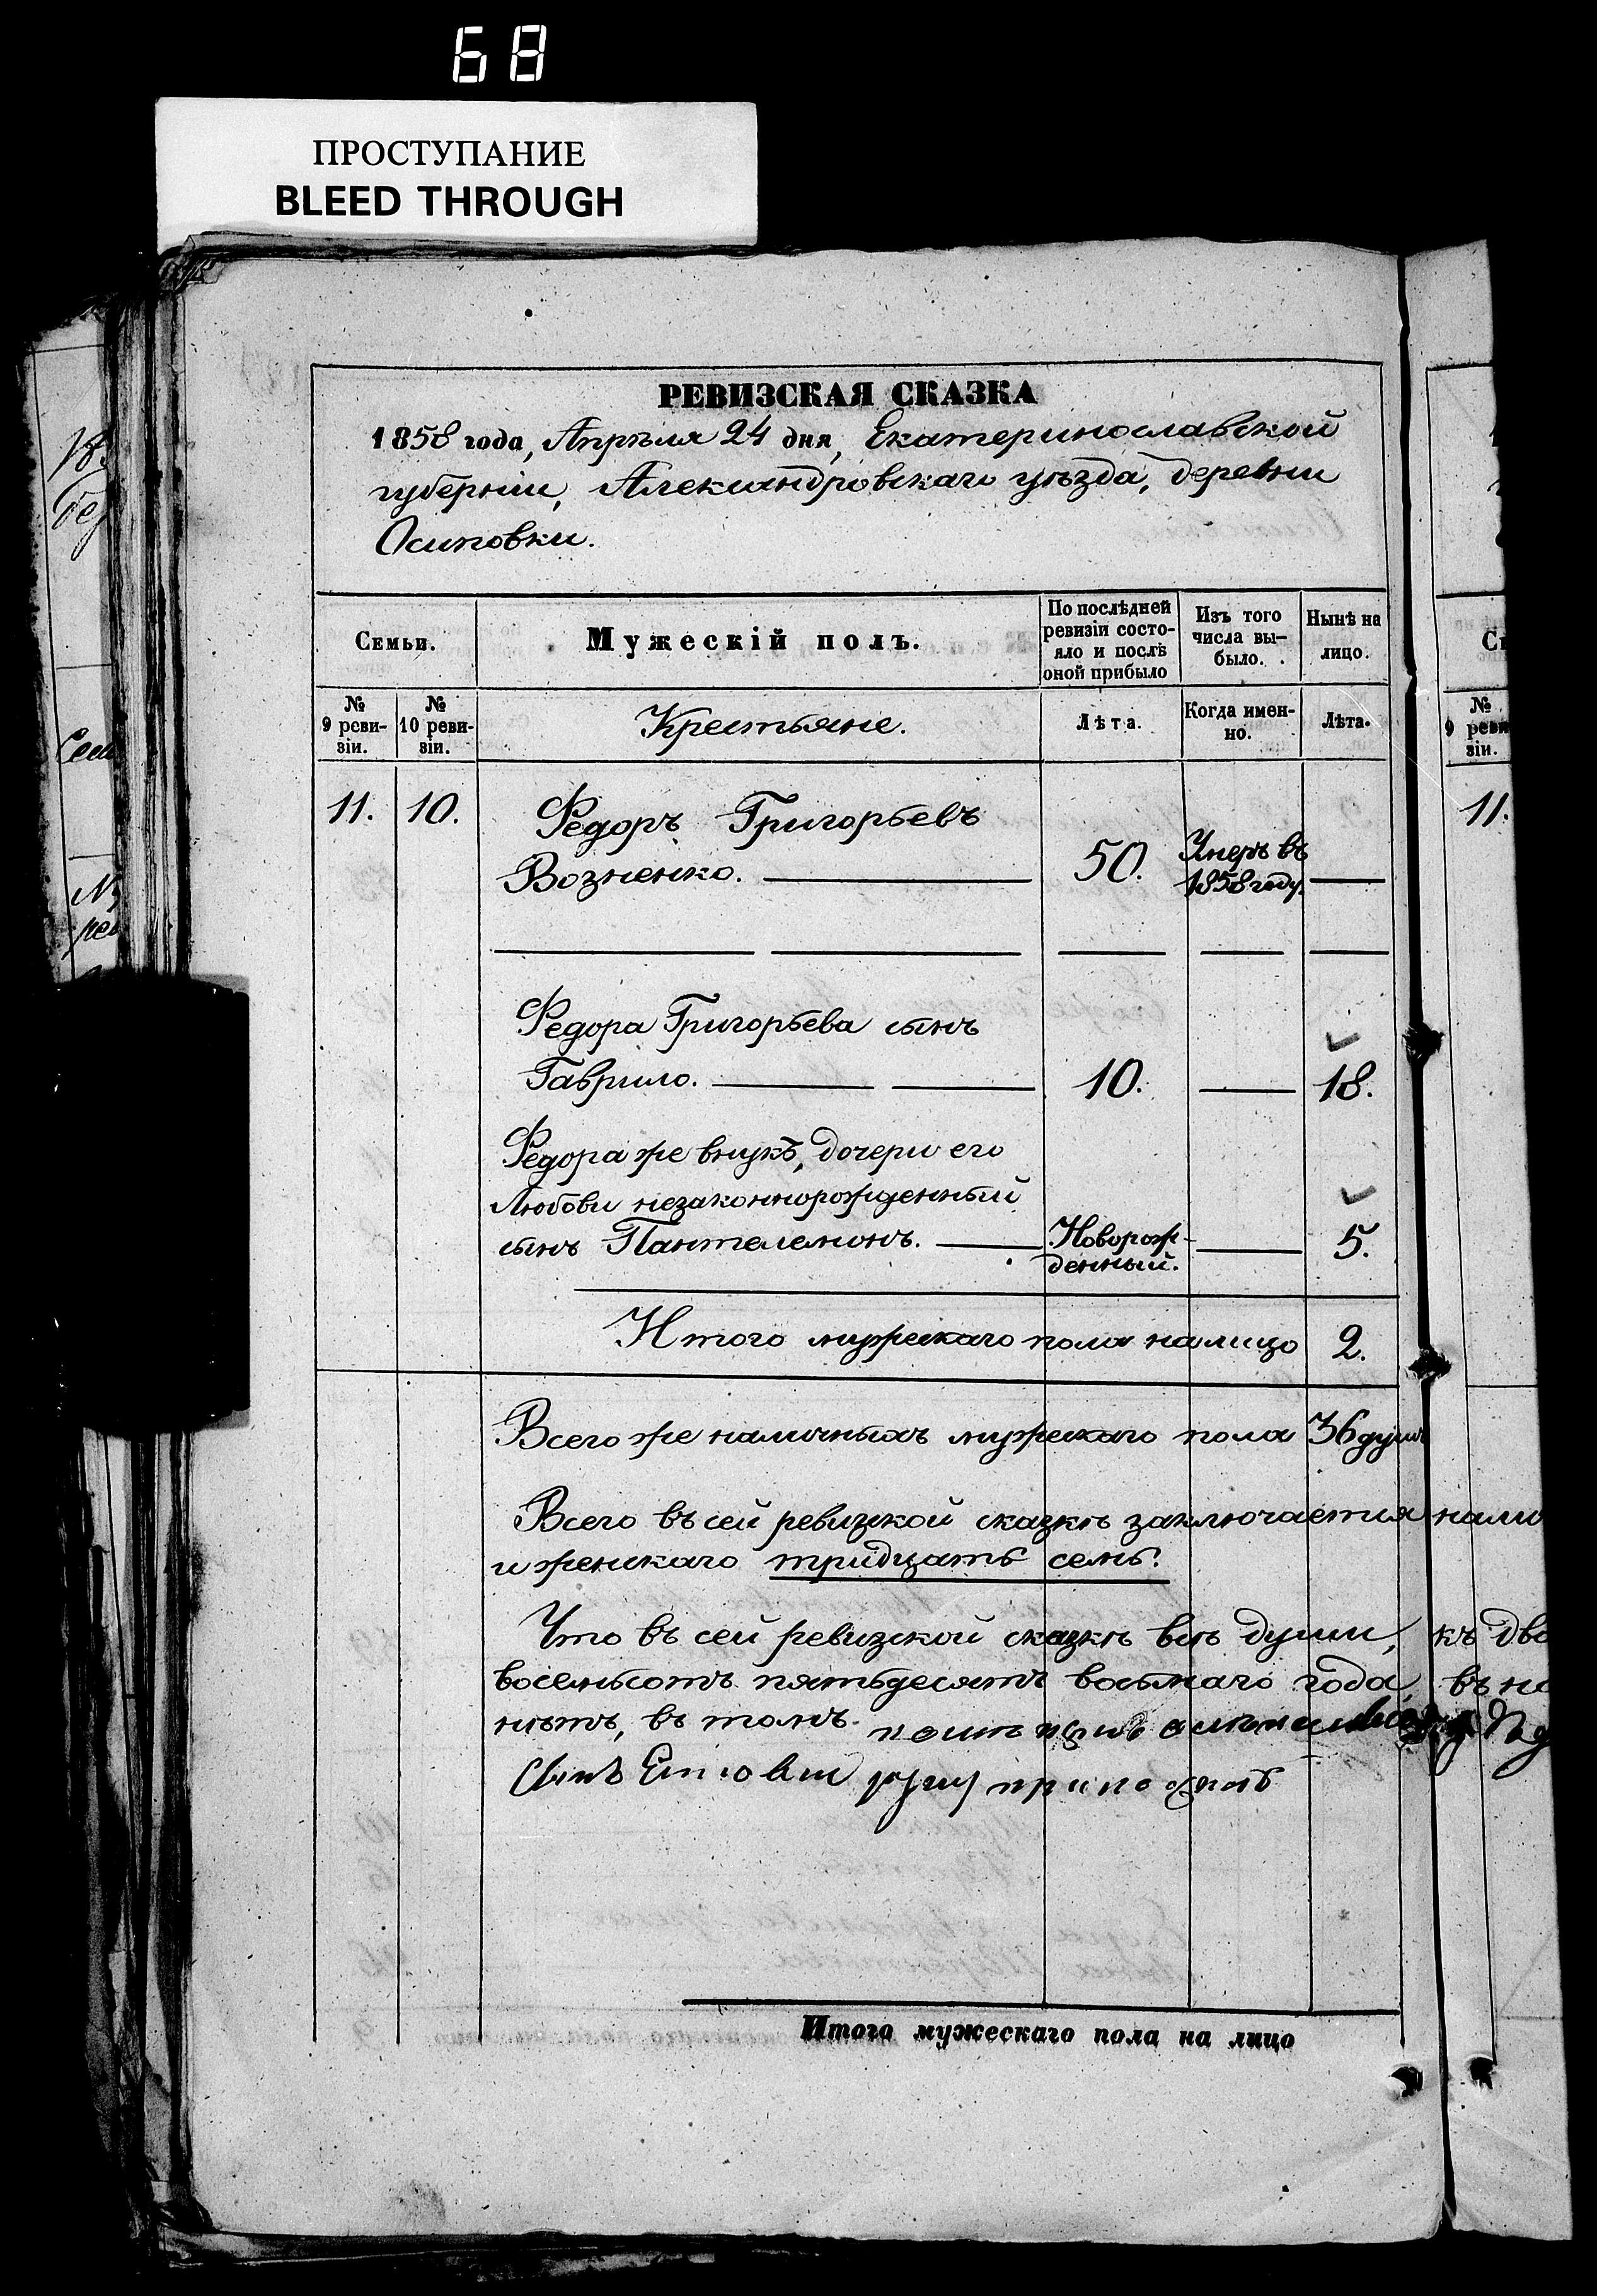 68
ПРОСТУПАНИЕ
BLEED THROUGH
РЕВИЗСКАЯ СКАЗКА
1858 года, Апрѣля 24 дня, Екатеринославской
губерніи, Александровскаго уѣзда, деревни
Осиповки.
Семьи.
Мужескій полъ.
По послѣдней
ревизіи состо-
яло и послѣ
оной прибыло
Изъ того
числа вы-
было.
Нынѣ на
лицо.
№
9 реви-
зіи.
№
10 реви-
зіи.
Крестьяне.
Лѣта.
Когда имен-
но.
Лѣта.
11. 10. Федоръ Григорьевъ
Возненко. 50. Умеръ въ
1858 году.
Федора Григорьева сынъ
Гаврило. 10. 18.
Федора же внукъ, дочери его
Любови незаконнорожденный
сынъ Пантелемонъ. Новорож-
денный. 5.
Итого мужскаго пола налицо 2.
Всего же наличныхъ мужскаго пола 36 душъ
Всего въ сей ревизкой сказкѣ заключается нали
и женскаго тридцать семь.
Что въ сей ревизской сказкѣ всѣ души, къ дво
восемьсотъ пятьдесятъ восьмаго года, въ на
нѣтъ, въ томъ
сынъ руку приложилъ
Итого мужескаго пола на лицо
№
9 реви
зіи.
11.